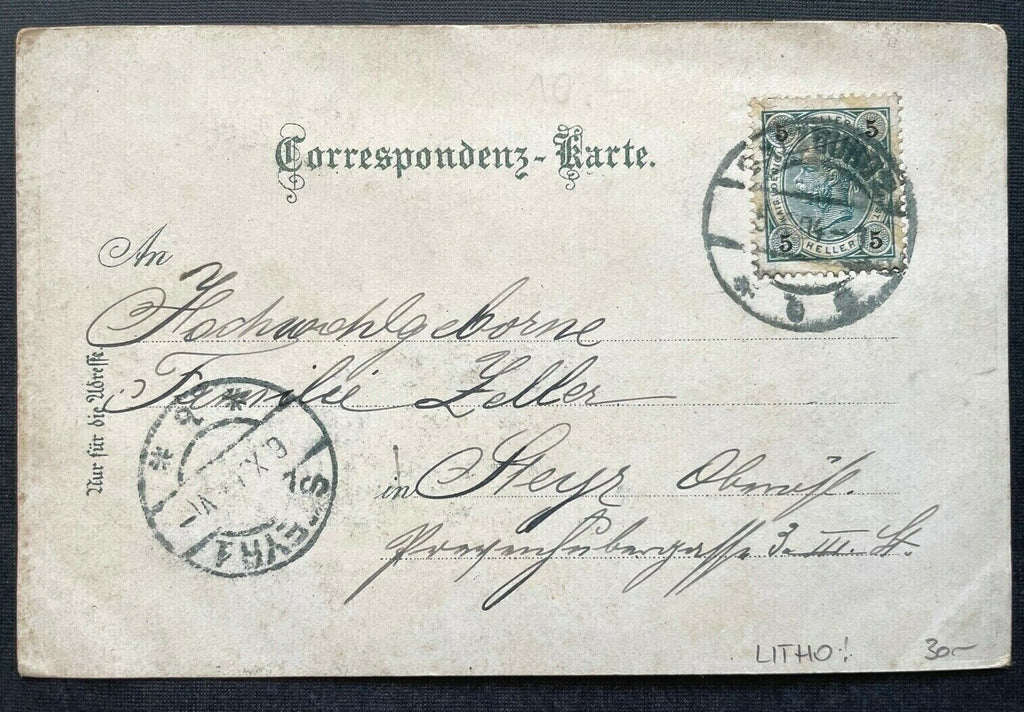 Correspondenz-Karte.
5 HELLER 5
5 HELLER 5
An
Hochwohlgeborne
Familie Zeller
in Steyr Oberöst.
3. III. St.
Nur für die Adresse.
STEYR 1
LITHO!
30-